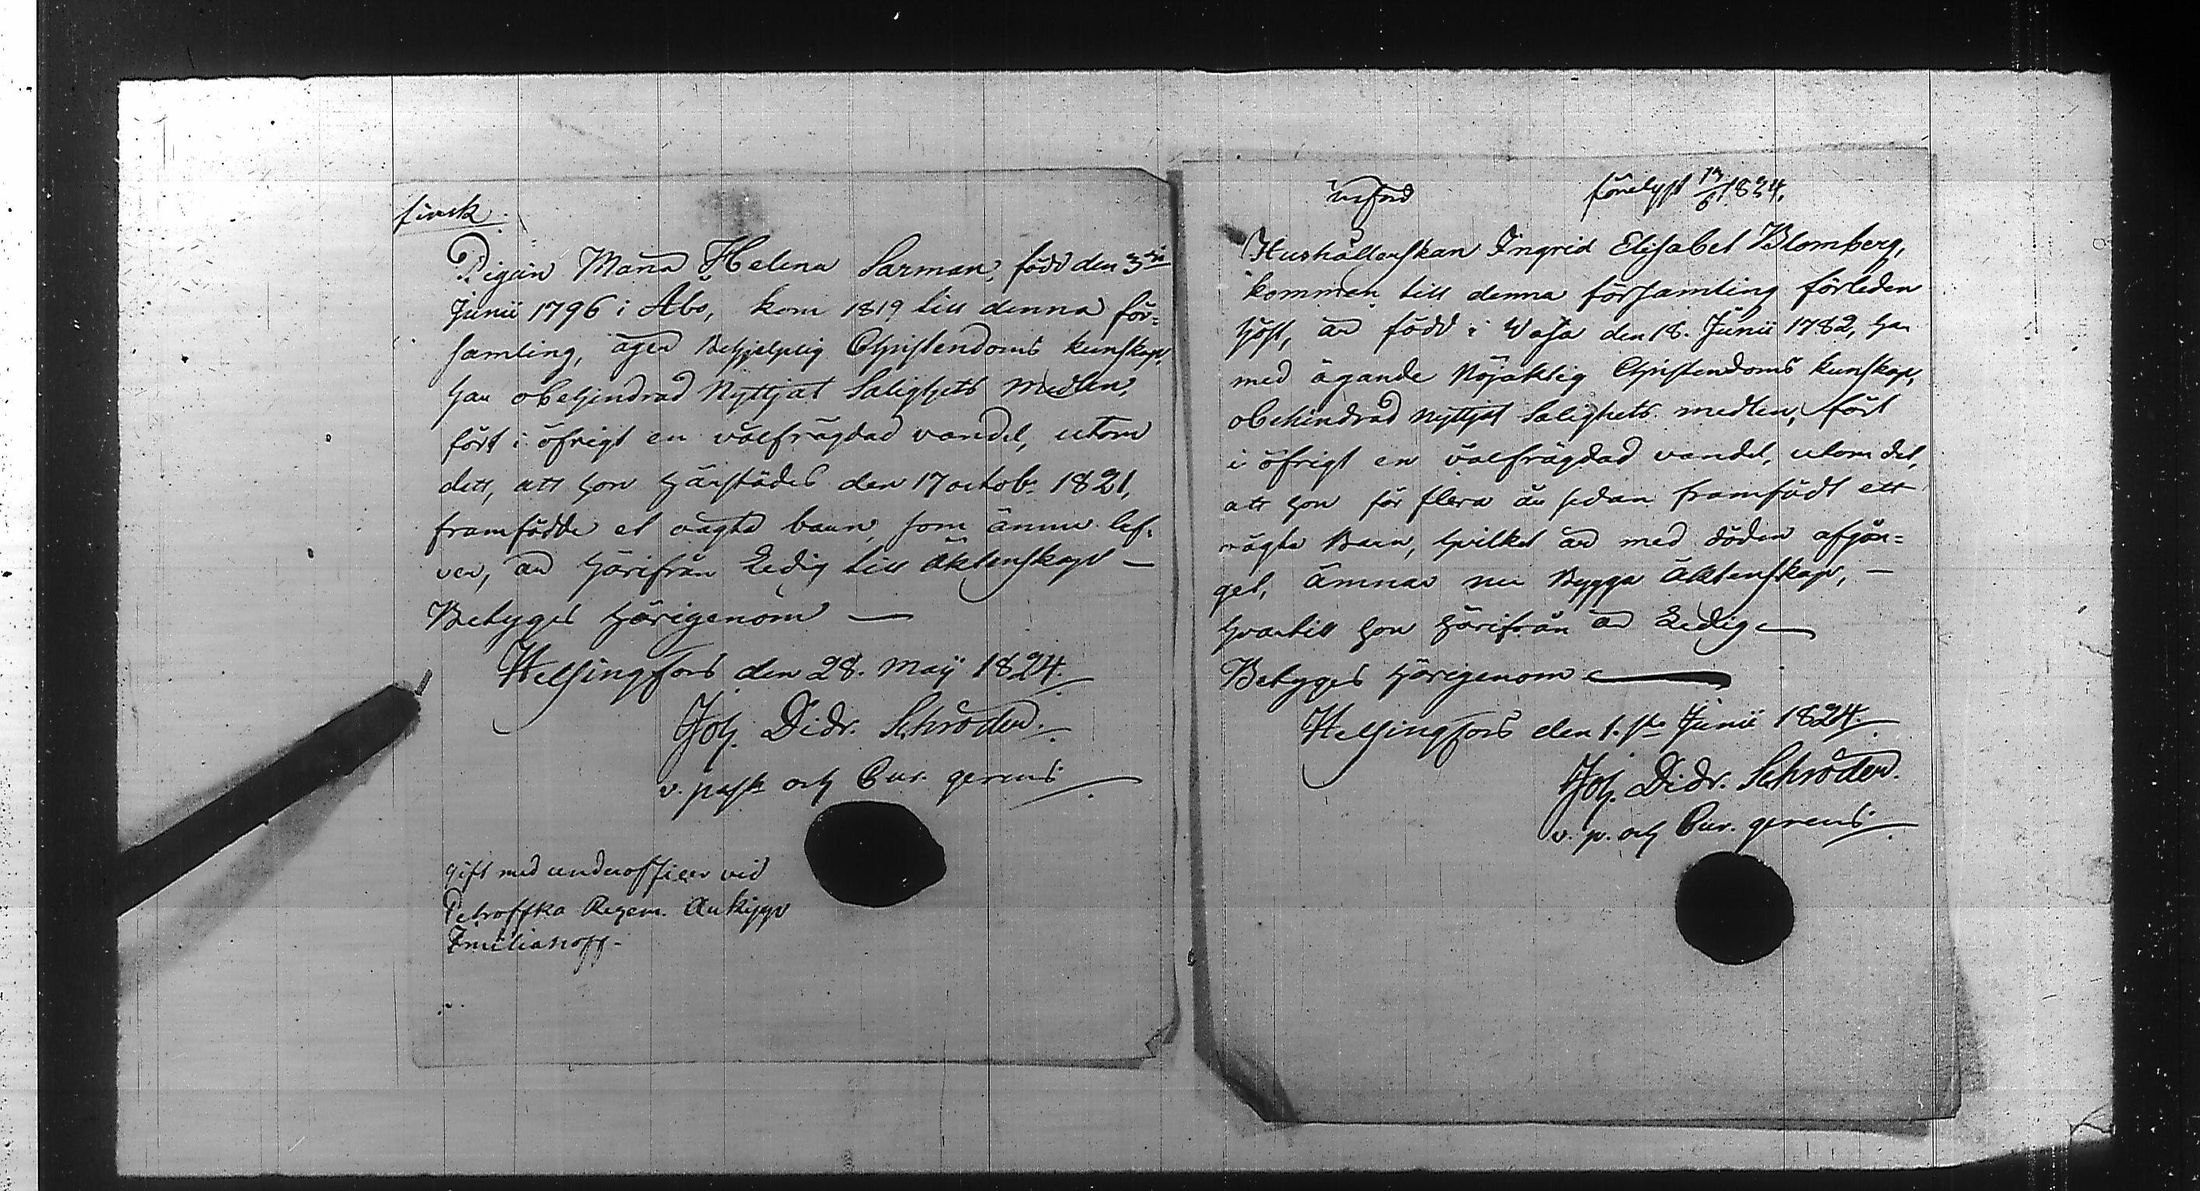 finsk.
Pigan Maria Helena Sarman, född den 3die
Junii 1796 i Åbo, kom 1819 till denna för=
samling, äger Behjelplig Christendoms kunskap,
har obehindrad Nyttjat Salighets medlen,
fört i öfrigt en välfrägdad vandel, utom
dett, att hon härstädes den 17 octob. 1821,
framfödde et oägta barn, som ännu lef-
ver, är härifrån Ledig till Äktenskap —
Betyges härigenom —
Helsingfors den 28. Maÿ 1824.
Joh. Didr. Schröder.
v. past. och Cur. gerens.
gift med underofficer vid
Petroffska Regem.
Imilianoff.
införd
förelyst 13/6 1824.
Hushållerskan Ingrid Elisabet Blomberg,
kommen till denna församling förleden
höst, är född i Wasa den 18. Junii 1782, har
med ägande Nöjaktig Christendoms kunskap,
obehindrad nyttjat Salighets medlen, fört
i öfrigt en välfrägdad vandel, utom det,
att hon för flera år sedan framfödt ett
oägta Barn, hvilket är med döden afgån=
get, ämnar nu Bygga Äktenskap, —
hvartill hon härifrån är Ledig —
Betyges härigenom —
Helsingfors den 1.sta Junii 1824.
Joh. Didr. Schröder.
v. p. och Cur. gerens.